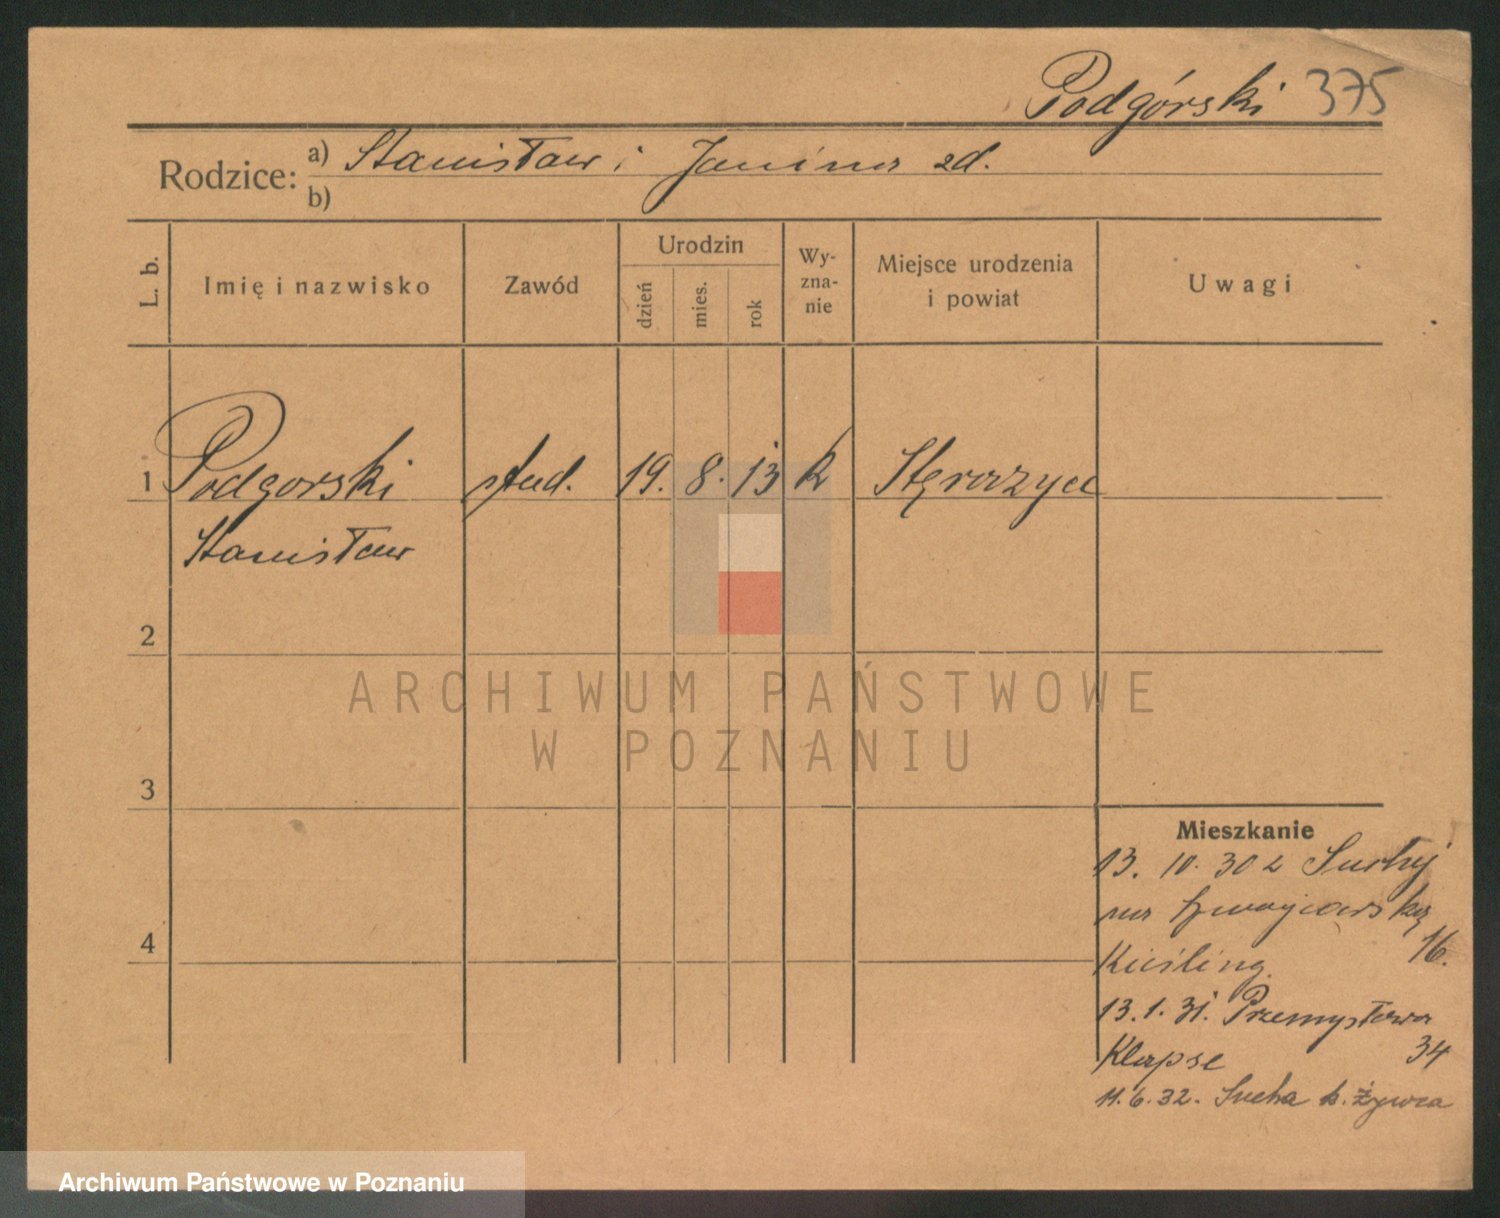 Podgórski 375
Rodzice: a) Stanisław i Janina zd.
b)
L. b. Imię i nazwisko Zawód Urodzin dzień mies. rok Wy-zna-nie Miejsce urodzenia i powiat Uwagi
1 Podgorski stud. 19. 8. 13 k Stężyca
Stanisław
2
ARCHIWUM PAŃSTWOWE
W POZNANIU
3
Mieszkanie
13. 10. 30 z Suchej
na Szwajcarską
4
16.
Kiesling.
13. 1. 31. Przemysłowa
Klapse 34
11. 6. 32. Sucha k. Żywca
Archiwum Państwowe w Poznaniu